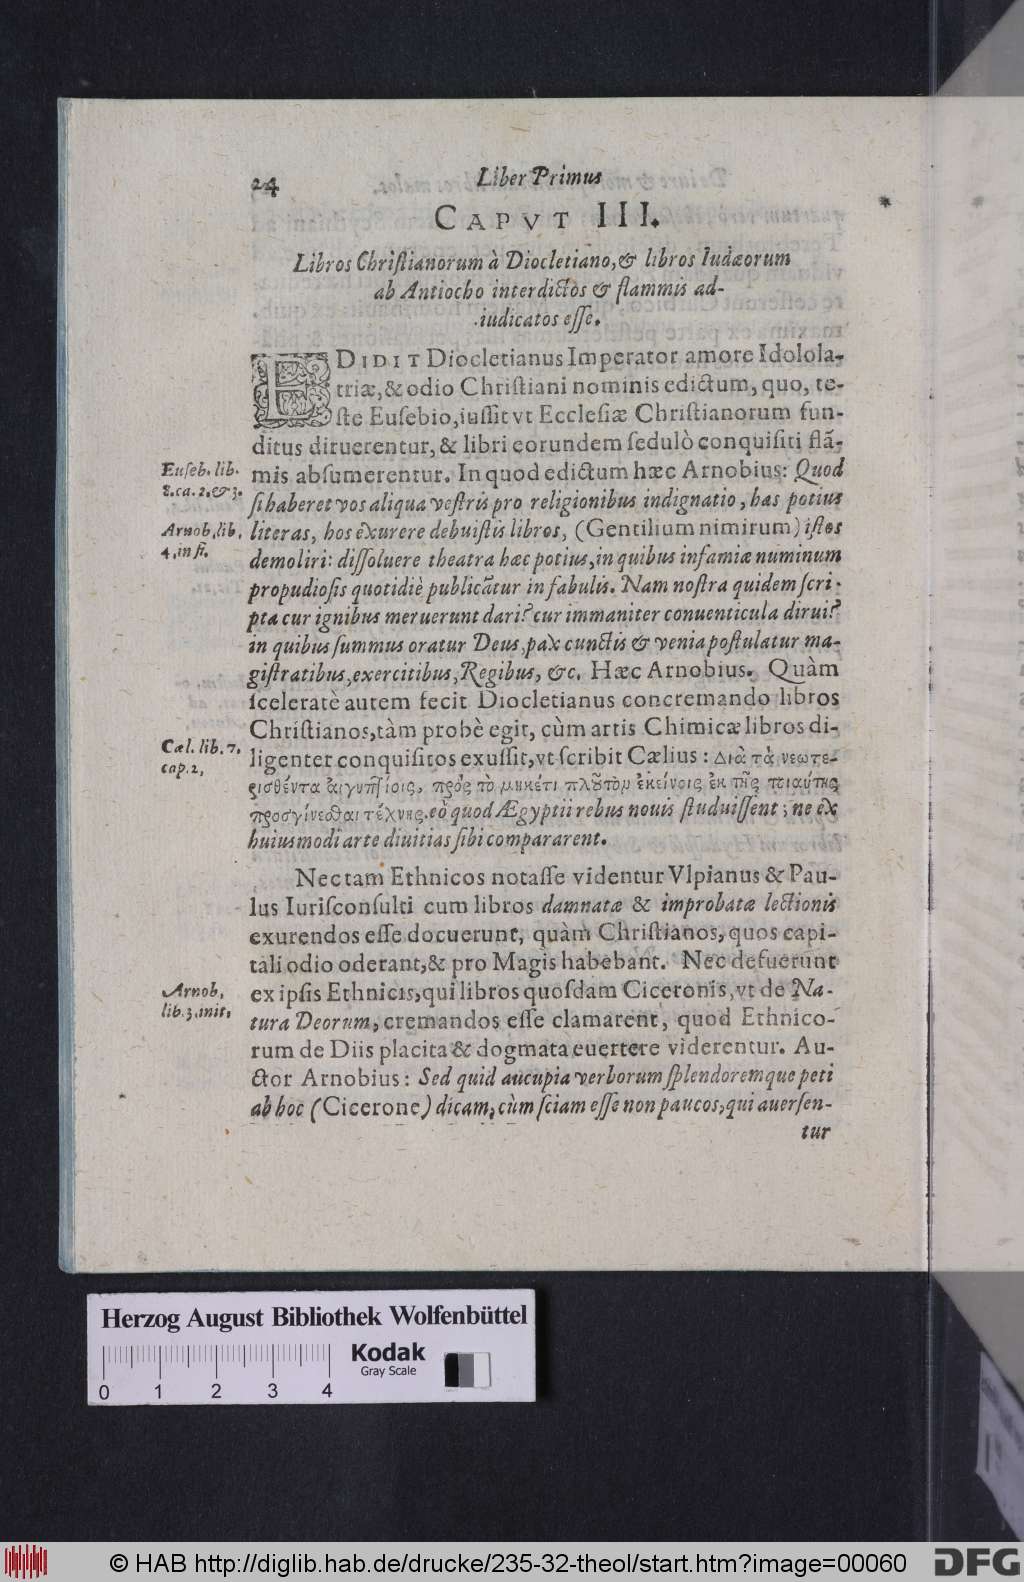 24 Liber Primus
CAPVT III.
Libros Christianorum à Diocletiano, & libros Iudæorum
ab Antiocho interdictos & flammis ad-
iudicatos esse.
EDIDIT Diocletianus Imperator amore Idolola-
triæ, & odio Christiani nominis edictum, quo, te-
ste Eusebio, iussit vt Ecclesiæ Christianorum fun-
ditus diruerentur, & libri eorundem sedulò conquisiti flã-
Euseb. lib.
8. ca. 2. & 3.
mis absumerentur. In quod edictum hæc Arnobius: Quod
si haberet vos aliqua vestris pro religionibus indignatio, has potius
Arnob. lib.
4. in fi.
literas, hos exurere debuistis libros, (Gentilium nimirum) istos
demoliri: dissoluere theatra hæc potius, in quibus infamiæ numinum
propudiosis quotidiè publicãtur in fabulis. Nam nostra quidem scri-
pta cur ignibus meruerunt dari? cur immaniter conuenticula dirui?
in quibus summus oratur Deus, pax cunctis & venia postulatur ma-
gistratibus, exercitibus, Regibus, &c. Hæc Arnobius. Quàm
sceleratè autem fecit Diocletianus concremando libros
Christianos, tàm probè egit, cùm artis Chimicæ libros di-
Cæl. lib. 7.
cap. 2,
ligenter conquisitos exussit, vt scribit Cælius: Διὰ τὰ νεωτε-
ρισθέντα ἀιγυπτίοις, πρὸς τὸ μηκέτι πλοῦτον ἐκείνοις ἐκ τῆς τοιαύτης
προσγίνεσθαι τέχνης. eò quod Ægyptii rebus nouis studuissent; ne ex
huiusmodi arte diuitias sibi compararent.
Nec tam Ethnicos notasse videntur Vlpianus & Pau-
lus Iurisconsulti cum libros damnatæ & improbatæ lectionis
exurendos esse docuerunt, quàm Christianos, quos capi-
tali odio oderant, & pro Magis habebant. Nec defuerunt
Arnob.
lib. 3. init.
ex ipsis Ethnicis, qui libros quosdam Ciceronis, vt de Na-
tura Deorum, cremandos esse clamarent, quod Ethnico-
rum de Diis placita & dogmata euertere viderentur. Au-
ctor Arnobius: Sed quid aucupia verborum splendoremque peti
ab hoc (Cicerone) dicam, cùm sciam esse non paucos, qui auersen-
tur
Herzog August Bibliothek Wolfenbüttel
Kodak
Gray Scale
0 1 2 3 4
© HAB http://diglib.hab.de/drucke/235-32-theol/start.htm?image=00060
DFG